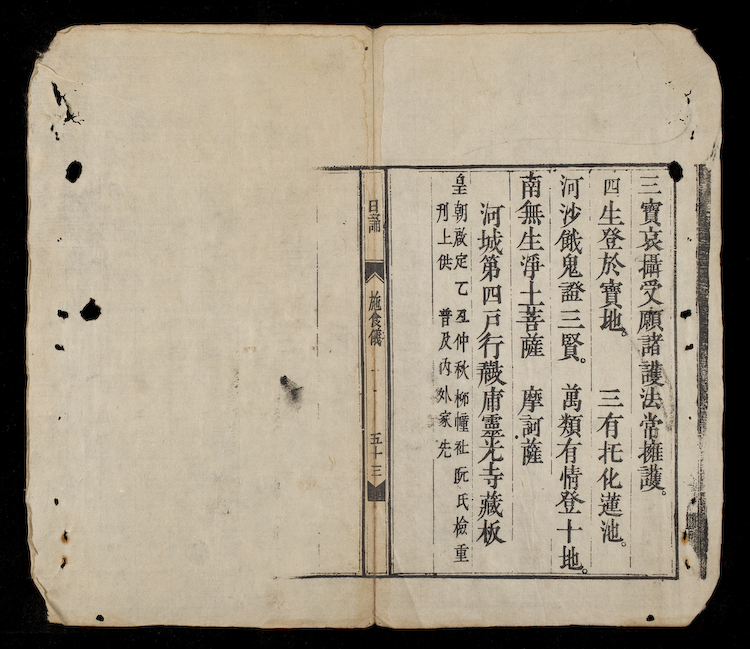 三寶哀攝受願諸護法常擁護。
四生登於寶地。 三有托化蓮池。
河沙餓鬼證三賢。 萬類有情登十地。
南無生淨土菩薩 摩訶薩
河城第四戸行薎庸靈光寺藏板
皇朝啟定乙丑仲秋柳幢祉阮氏檢重
刊上供 普及內外家先
日誦
施食儀
五十三